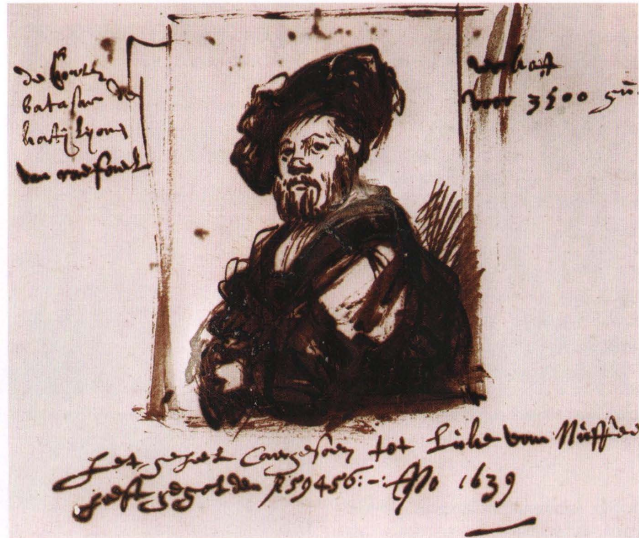 de Conte
batasar de
kastijlyone
van raefael
verkoft
voor 3500 gu.
het geheel Caergesoen tot Luke van Nuffeel
heeft gegolden f 59456:-: Ano 1639